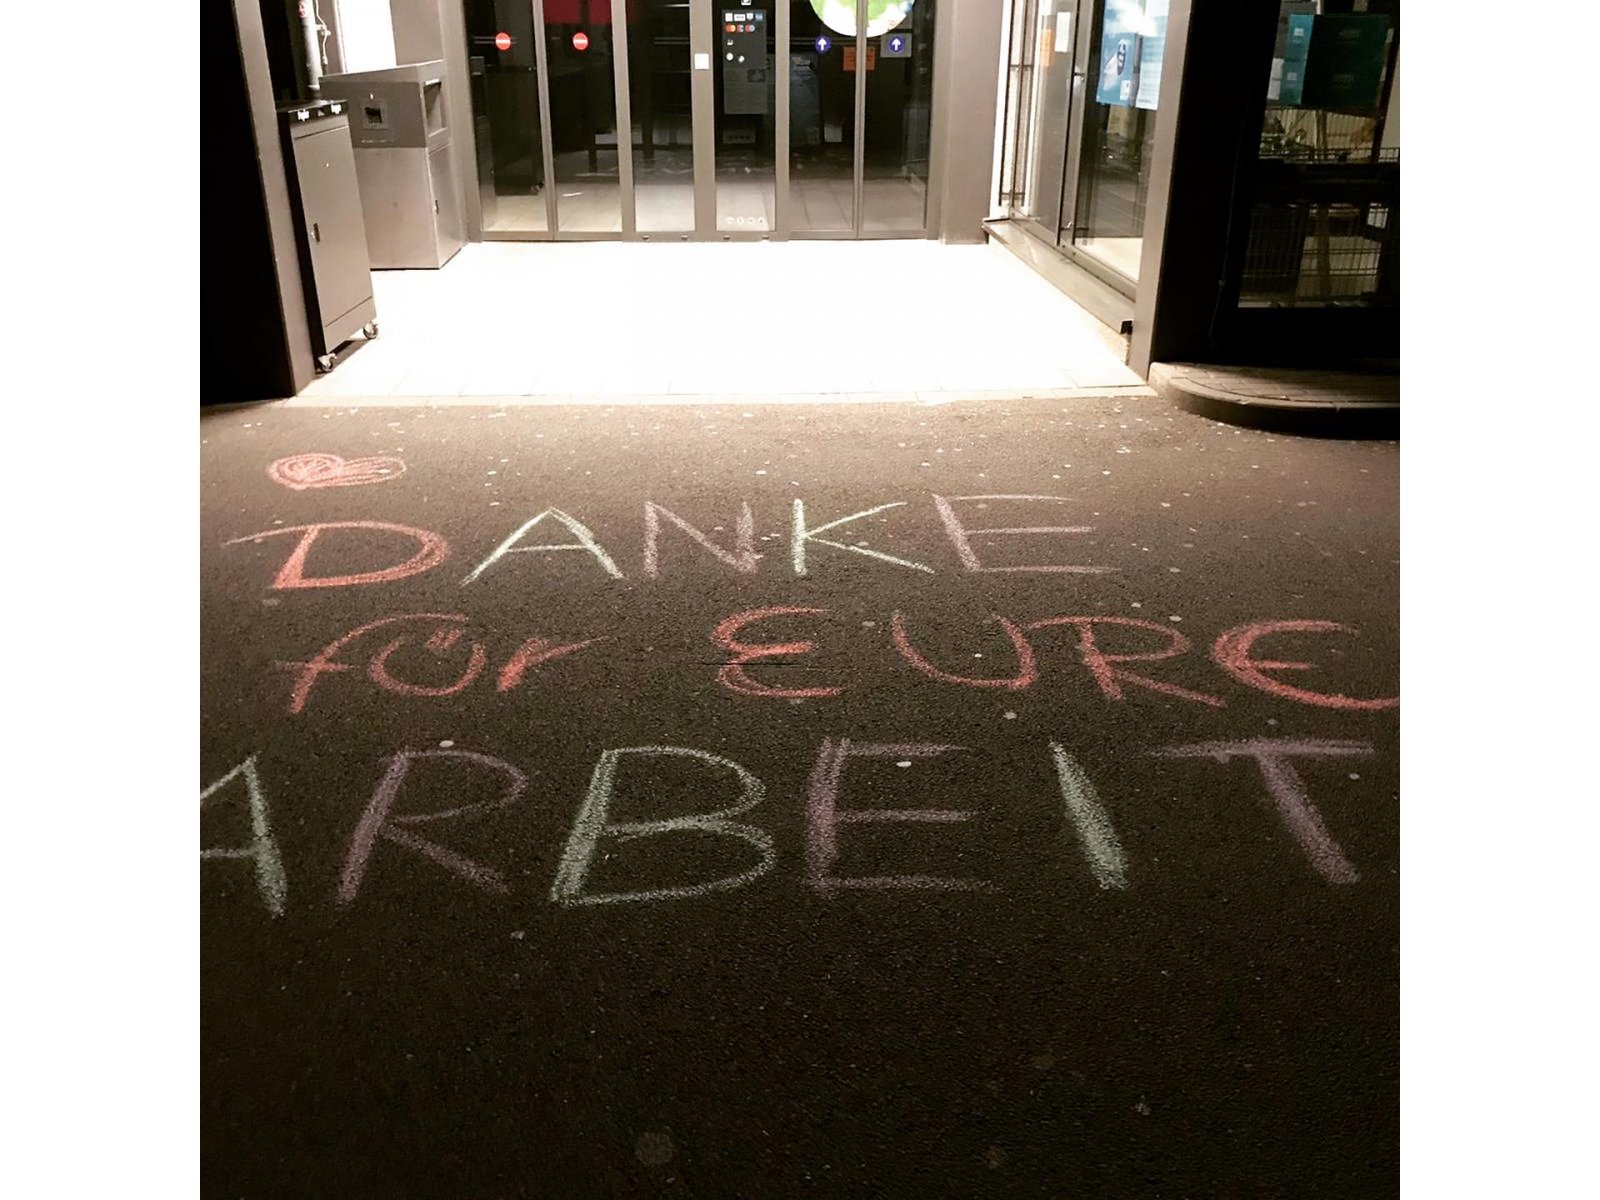 DANKE
für EURE
ARBEIT